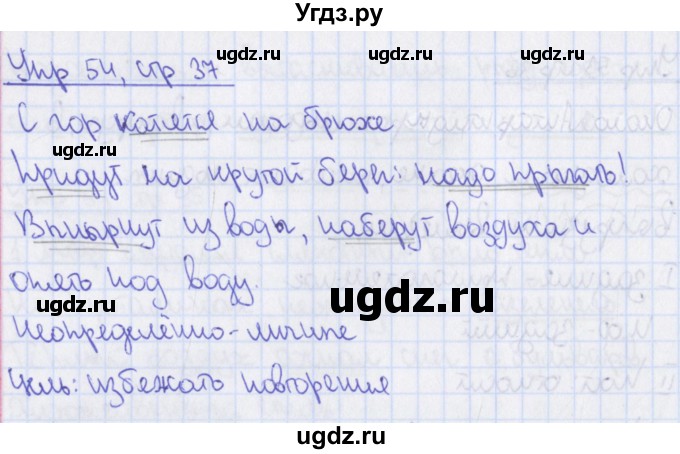 Угдз.ру
Упр 54, стр 37
ugdz.ru ugdz.ru
С гор катятся на брюхе
ugdz.ru ugdz.ru
Придут на крутой берег: надо прыгать!
Вынырнут из воды, наберут воздуха и
опять под воду.
ugdz.ru ugdz.ru ugdz.ru
Неопределённо-личные
Цель: избежать повторения
ugdz.ru